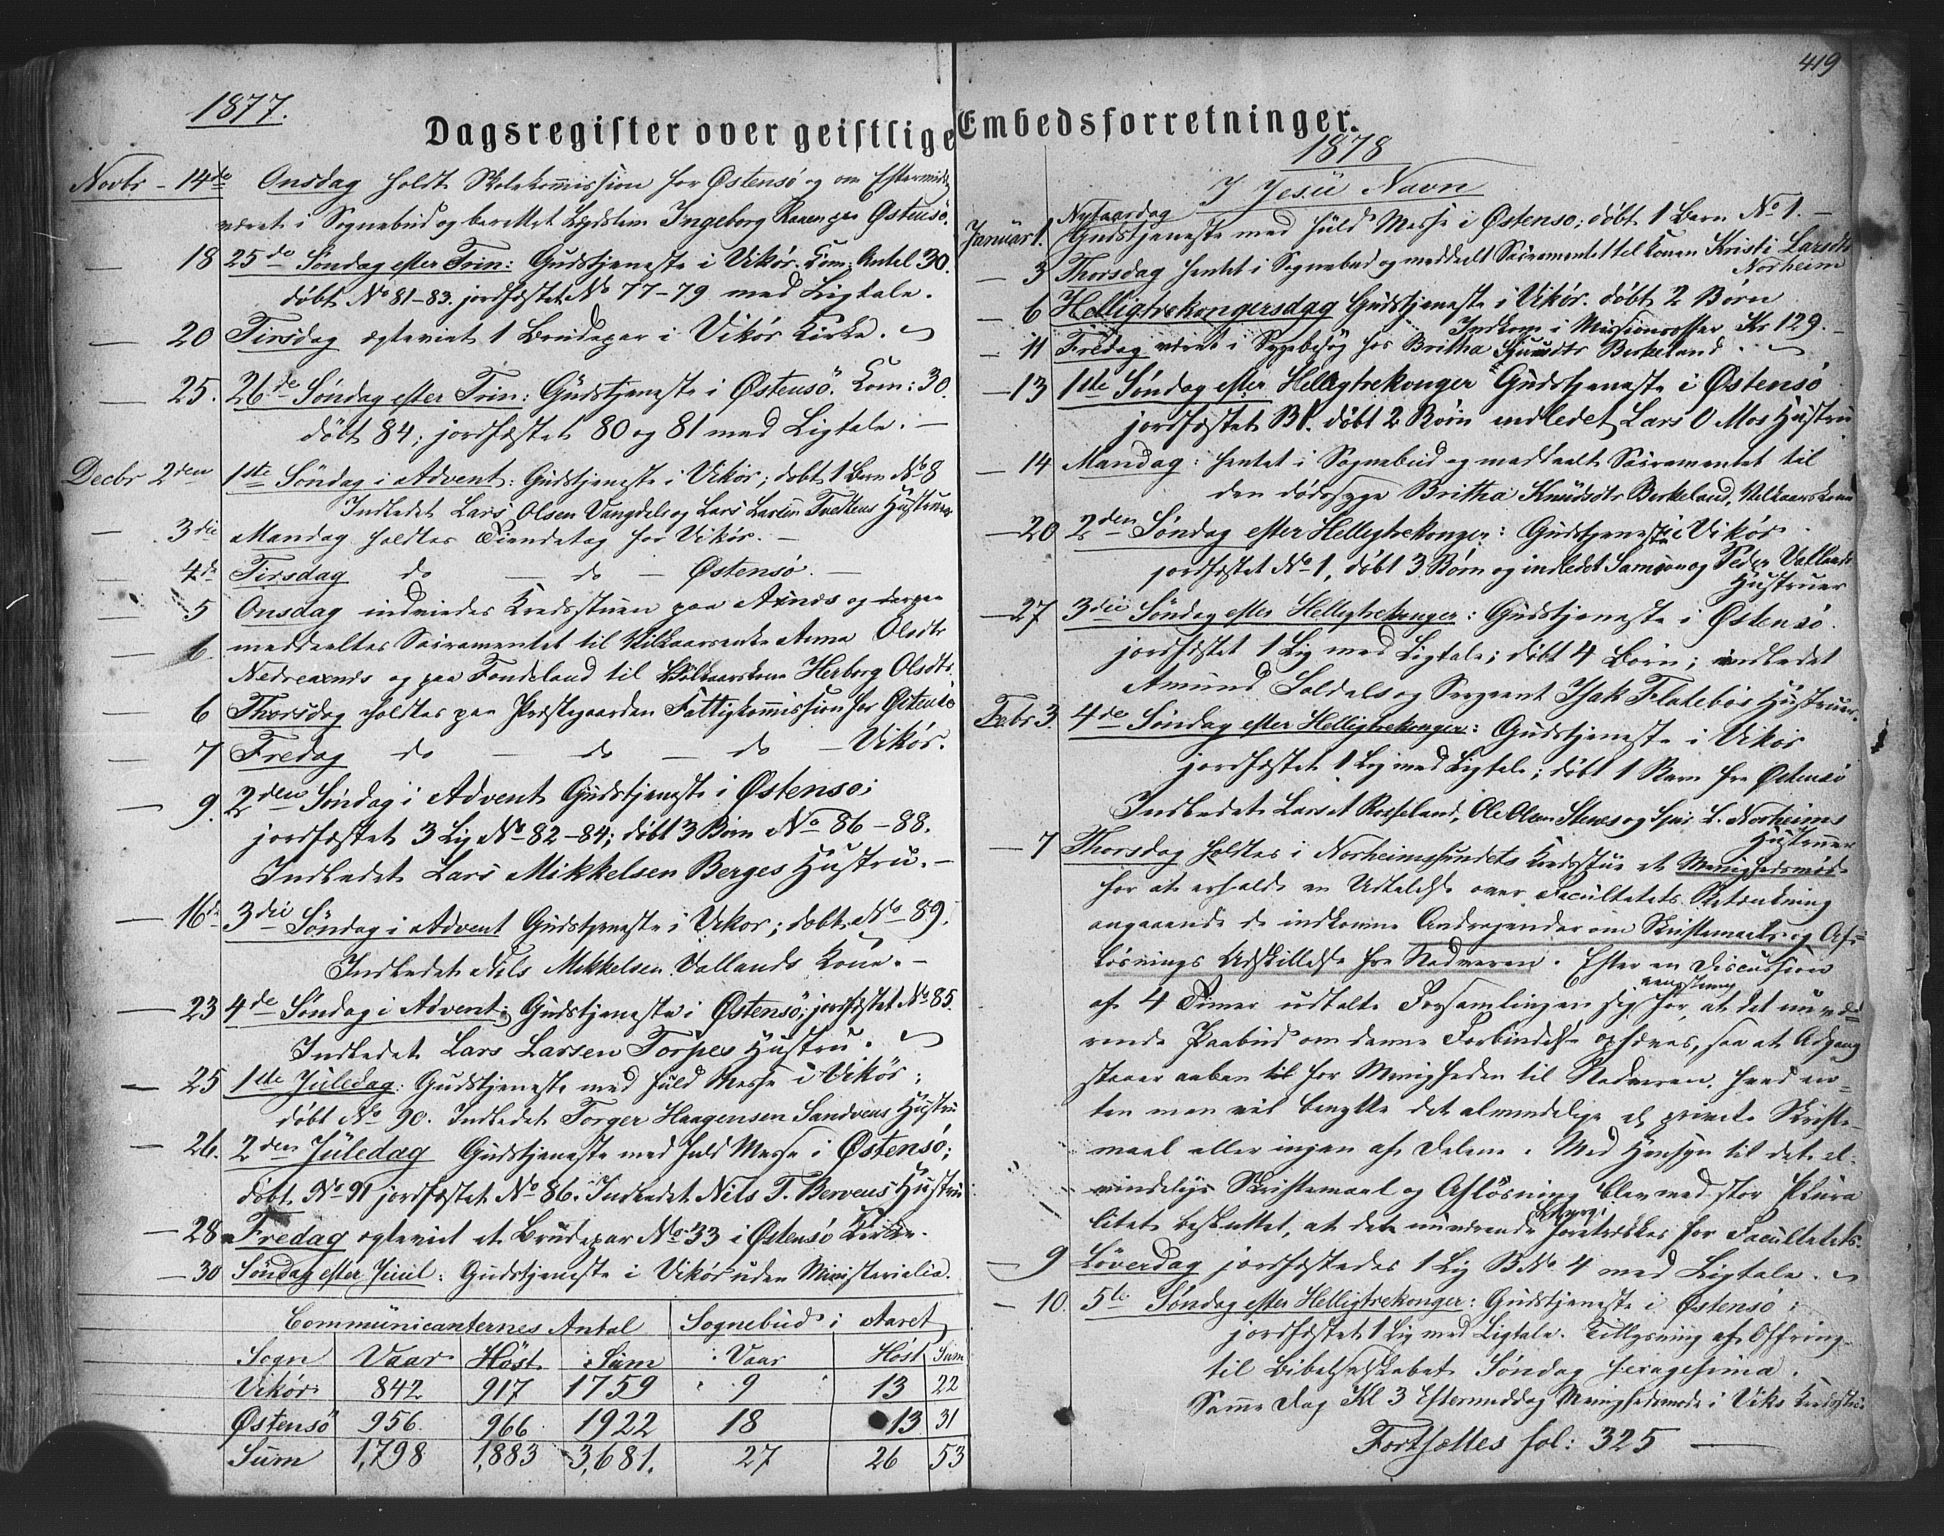 1877.
Dagsregister over geistlige
Novbr - 14de Onsdag holdt Skolekommission for Østensö og om Eftermidd
været i Sognebud og berettet Ingeborg paa Østensö.
— 18 25de Søndag efter Trin: Gudstjeneste i Vikör. Com: Antal 30.
döbt No 81-83. jordfæstet No 77-79 med Ligtale.
— 20 Tirsdag egteviet 1 Brudepar i Vikör Kirke.
— 25. 26de Søndag efter Trin: Gudstjeneste i Østensö. Kom: 30.
döbt 84; jordfæstet 80 og 81 med Ligtale. —
Decbr 2den 1ste Søndag i Advent: Gudstjeneste i Vikör; döbt 1 Barn No 8
Indledet Lars Olsen Vangdals og Lars Larsen Tveitens Hustruer
— 3die Mandag holdtes Tiendetag for Vikör. —
— 4de Tirsdag do — do — Østensö. —
— 5 Onsdag indviedes Kredsstuen paa Axnæs og derpaa
— 6 meddeeltes Sacramentet til Vilkaarsenke Anna Olsdtr
og paa Fondeland til Vilkaarskone Herborg Olsdtr.
— 6 Thorsdag holdtes paa Præstegaarden Fattigkommission for Østensö
— 7 Fredag do — do — do — Vikör.
— 9. 2den Søndag i Advent Gudstjeneste i Østensö;
jordfæstet 3 Lig No 82-84; döbt 3 Börn No 86-88.
Indledet Lars Mikkelsen Berges Hustru. —
— 16de 3die Søndag i Advent Gudstjeneste i Vikör; döbt No 89.
Indledet Nils Mikkelsen Vallands Kone. —
— 23 4de Søndag i Advent; Gudstjeneste i Østensö; jordfæstet No 85.
Indledet Lars Larsen Torpes Hustru.
— 25 1ste Juledag: Gudstjeneste med fuld Messe i Vikör;
döbt No 90. Indledet Torger Haagensen Sandvens Hustru
— 26. 2den Juledag Gudstjeneste med fuld Messe i Østensö;
döbt No 91 jordfæstet No 86. Indledet Nils T. Bervens Hustru
— 28 Fredag egteviet et Brudepar No 33 i Østensö Kirke.
— 30 Søndag efter Juul: Gudstjeneste i Vikör uden Ministerialia.
Communicanternes Antal Sognebud i Aaret
Sogn Vaar Höst Sum Vaar Höst Sum
Vikör 842 917 1759 9 13 22
Østensö 956 966 1922 18 13 31
Sum 1,798 1,883 3,681. 27 26 53
419
Embedsforretninger.
1878
I Jesu Navn
Januar 1. Nytaarsdag Gudstjeneste med fuld Messe i Østensö; döbt 1 Barn No 1. —
— 3 Thorsdag hentet i Sognebud og meddeelt Sacramentet til Konen Kristi Larsdtr
Norheim
— 6 Helligtrekongersdag Gudstjeneste i Vikör. döbt 2 Börn
Indkom i Missionsoffer Kr 129. —
— 11 Fredag været i Sygebesög hos Britha Berkeland.
— 13 1ste Søndag efter Helligtrekonger Gudstjeneste i Østensö
jordfæstet döbt 2 Börn indledet Lars O Mos Hustru
— 14 Mandag: hentet i Sognebud og meddeelt Sacramentet til
den dödssyge Britha Knudsdtr Berkeland, Vilkaarskone
— 20 2den Søndag efter Helligtrekonger: Gudstjeneste i Vikör
jordfæstet No 1, döbt 3 Börn og indledet Samson og Peder Vallands
Hustruer
— 27 3die Søndag efter Helligtrekonger: Gudstjeneste i Østensö.
jordfæstet 1 Lig med Ligtale; döbt 4 Börn; indledet
Amund Soldals og Sergeant Isak Flatebös Hustruer.
Febr 3. 4de Søndag efter Helligtrekonger: Gudstjeneste i Vikör
jordfæstet 1 Lig med Ligtale; döbt 1 Barn fra Østensö
Indledet Larset Rosseland, Ole Olsen Stenes og L. Norheims
Hustruer
— 7 Thorsdag holdtes i Norheimssundets Kredsstue et Menighedsmöde
for at erholde en Udtalelse over Facultetets Betænkning
angaaende de indkomne Andragender om Skriftemaals og Af-
lösnings Udskillelse fra Nadveren. Efter en Discussion
af 4 Timer udtalte Forsamlingen sig for, at det nuvæ-
rende Paabud om denne Forbindelse ophæves, saa at Adgang
staaer aaben til for Menigheden til Nadveren, hvad en-
ten man vil benytte det almindelige el private Skrifte-
maal eller ingen af Delene. Med Hensyn til det al-
mindelige Skriftemaal og Aflösning blev med stor Plura
litet besluttet, at den nuværende foretrækkes for Facultetets.
— 9 Löverdag jordfæstedes 1 Lig B No 4 med Ligtale.
— 10. 5te Søndag efter Helligtrekonger: Gudstjeneste i Østensö;
jordfæstet 1 Lig med Ligtale. Tillysning af Offring
til Bibelselskabet Søndag Sexagesima.
Samme Dag Kl 3 Eftermiddag Menighedsmöde i Viks Kredsstue
Fortsættes fol: 325 —